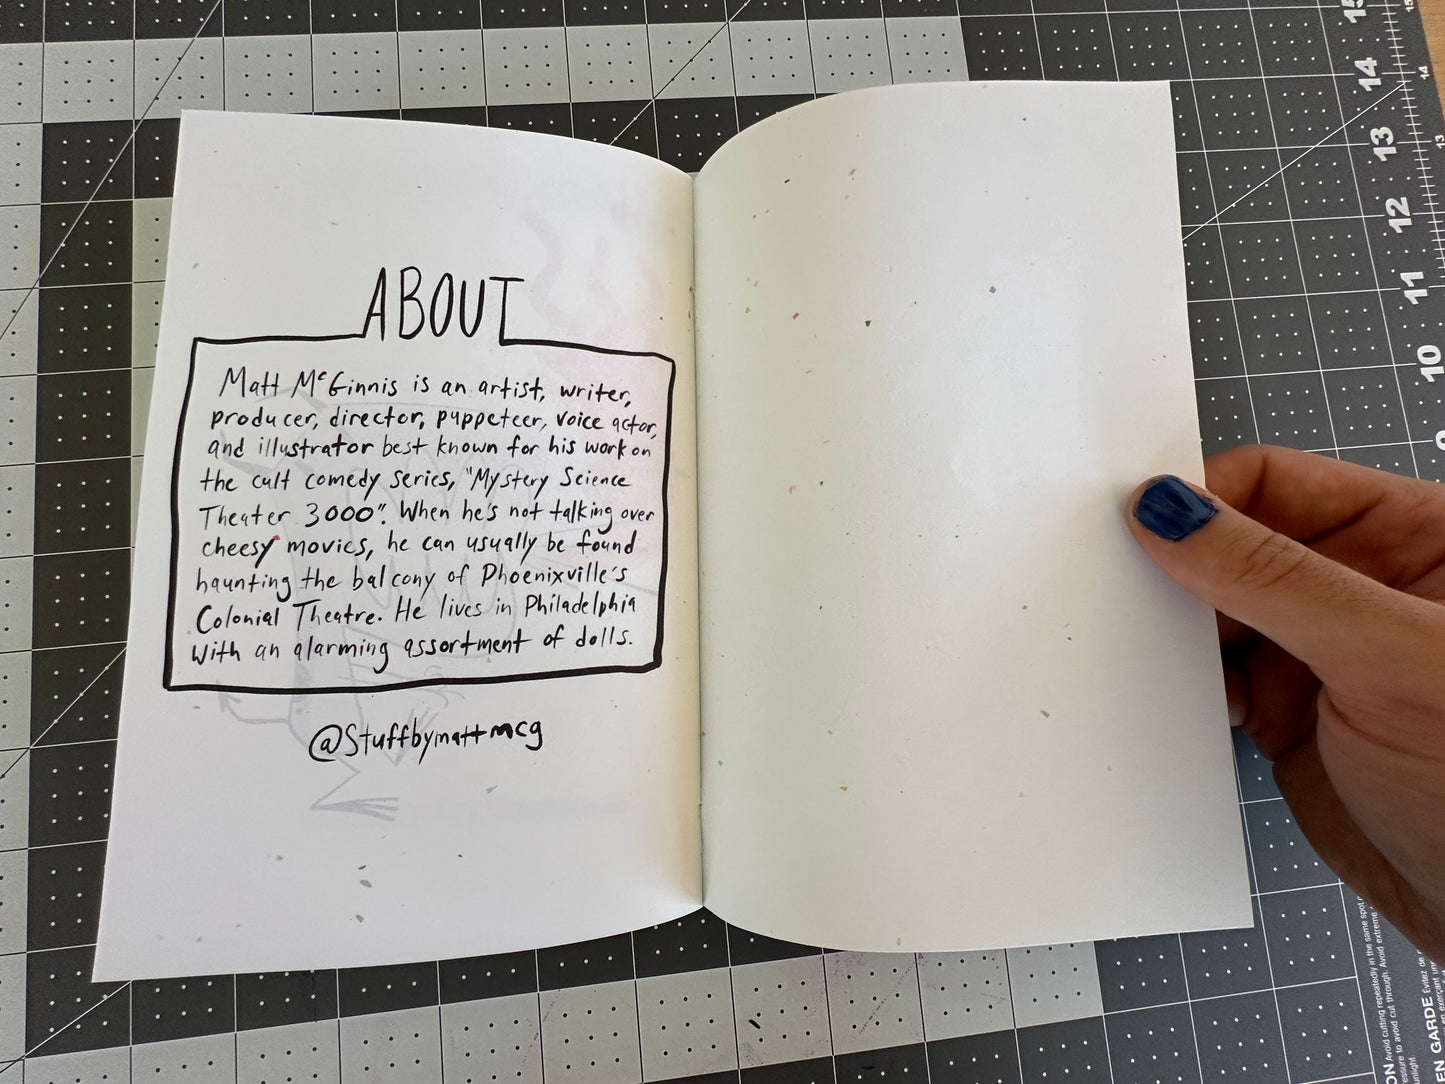 ABOUT
Matt McGinnis is an artist, writer,
producer, director, puppeteer, voice actor,
and illustrator best known for his work on
the cult comedy series, "Mystery Science
Theater 3000". When he's not talking over
cheesy movies, he can usually be found
haunting the balcony of Phoenixville's
Colonial Theatre. He lives in Philadelphia
with an alarming assortment of dolls.
@Stuffbymattmcg
15
14
13
12
11
10
9
15
14
13
ON Avoid cutting repeatedly in the same spot
to avoid cut through. Avoid extreme
sunlight.
EN GARDE Évitez de